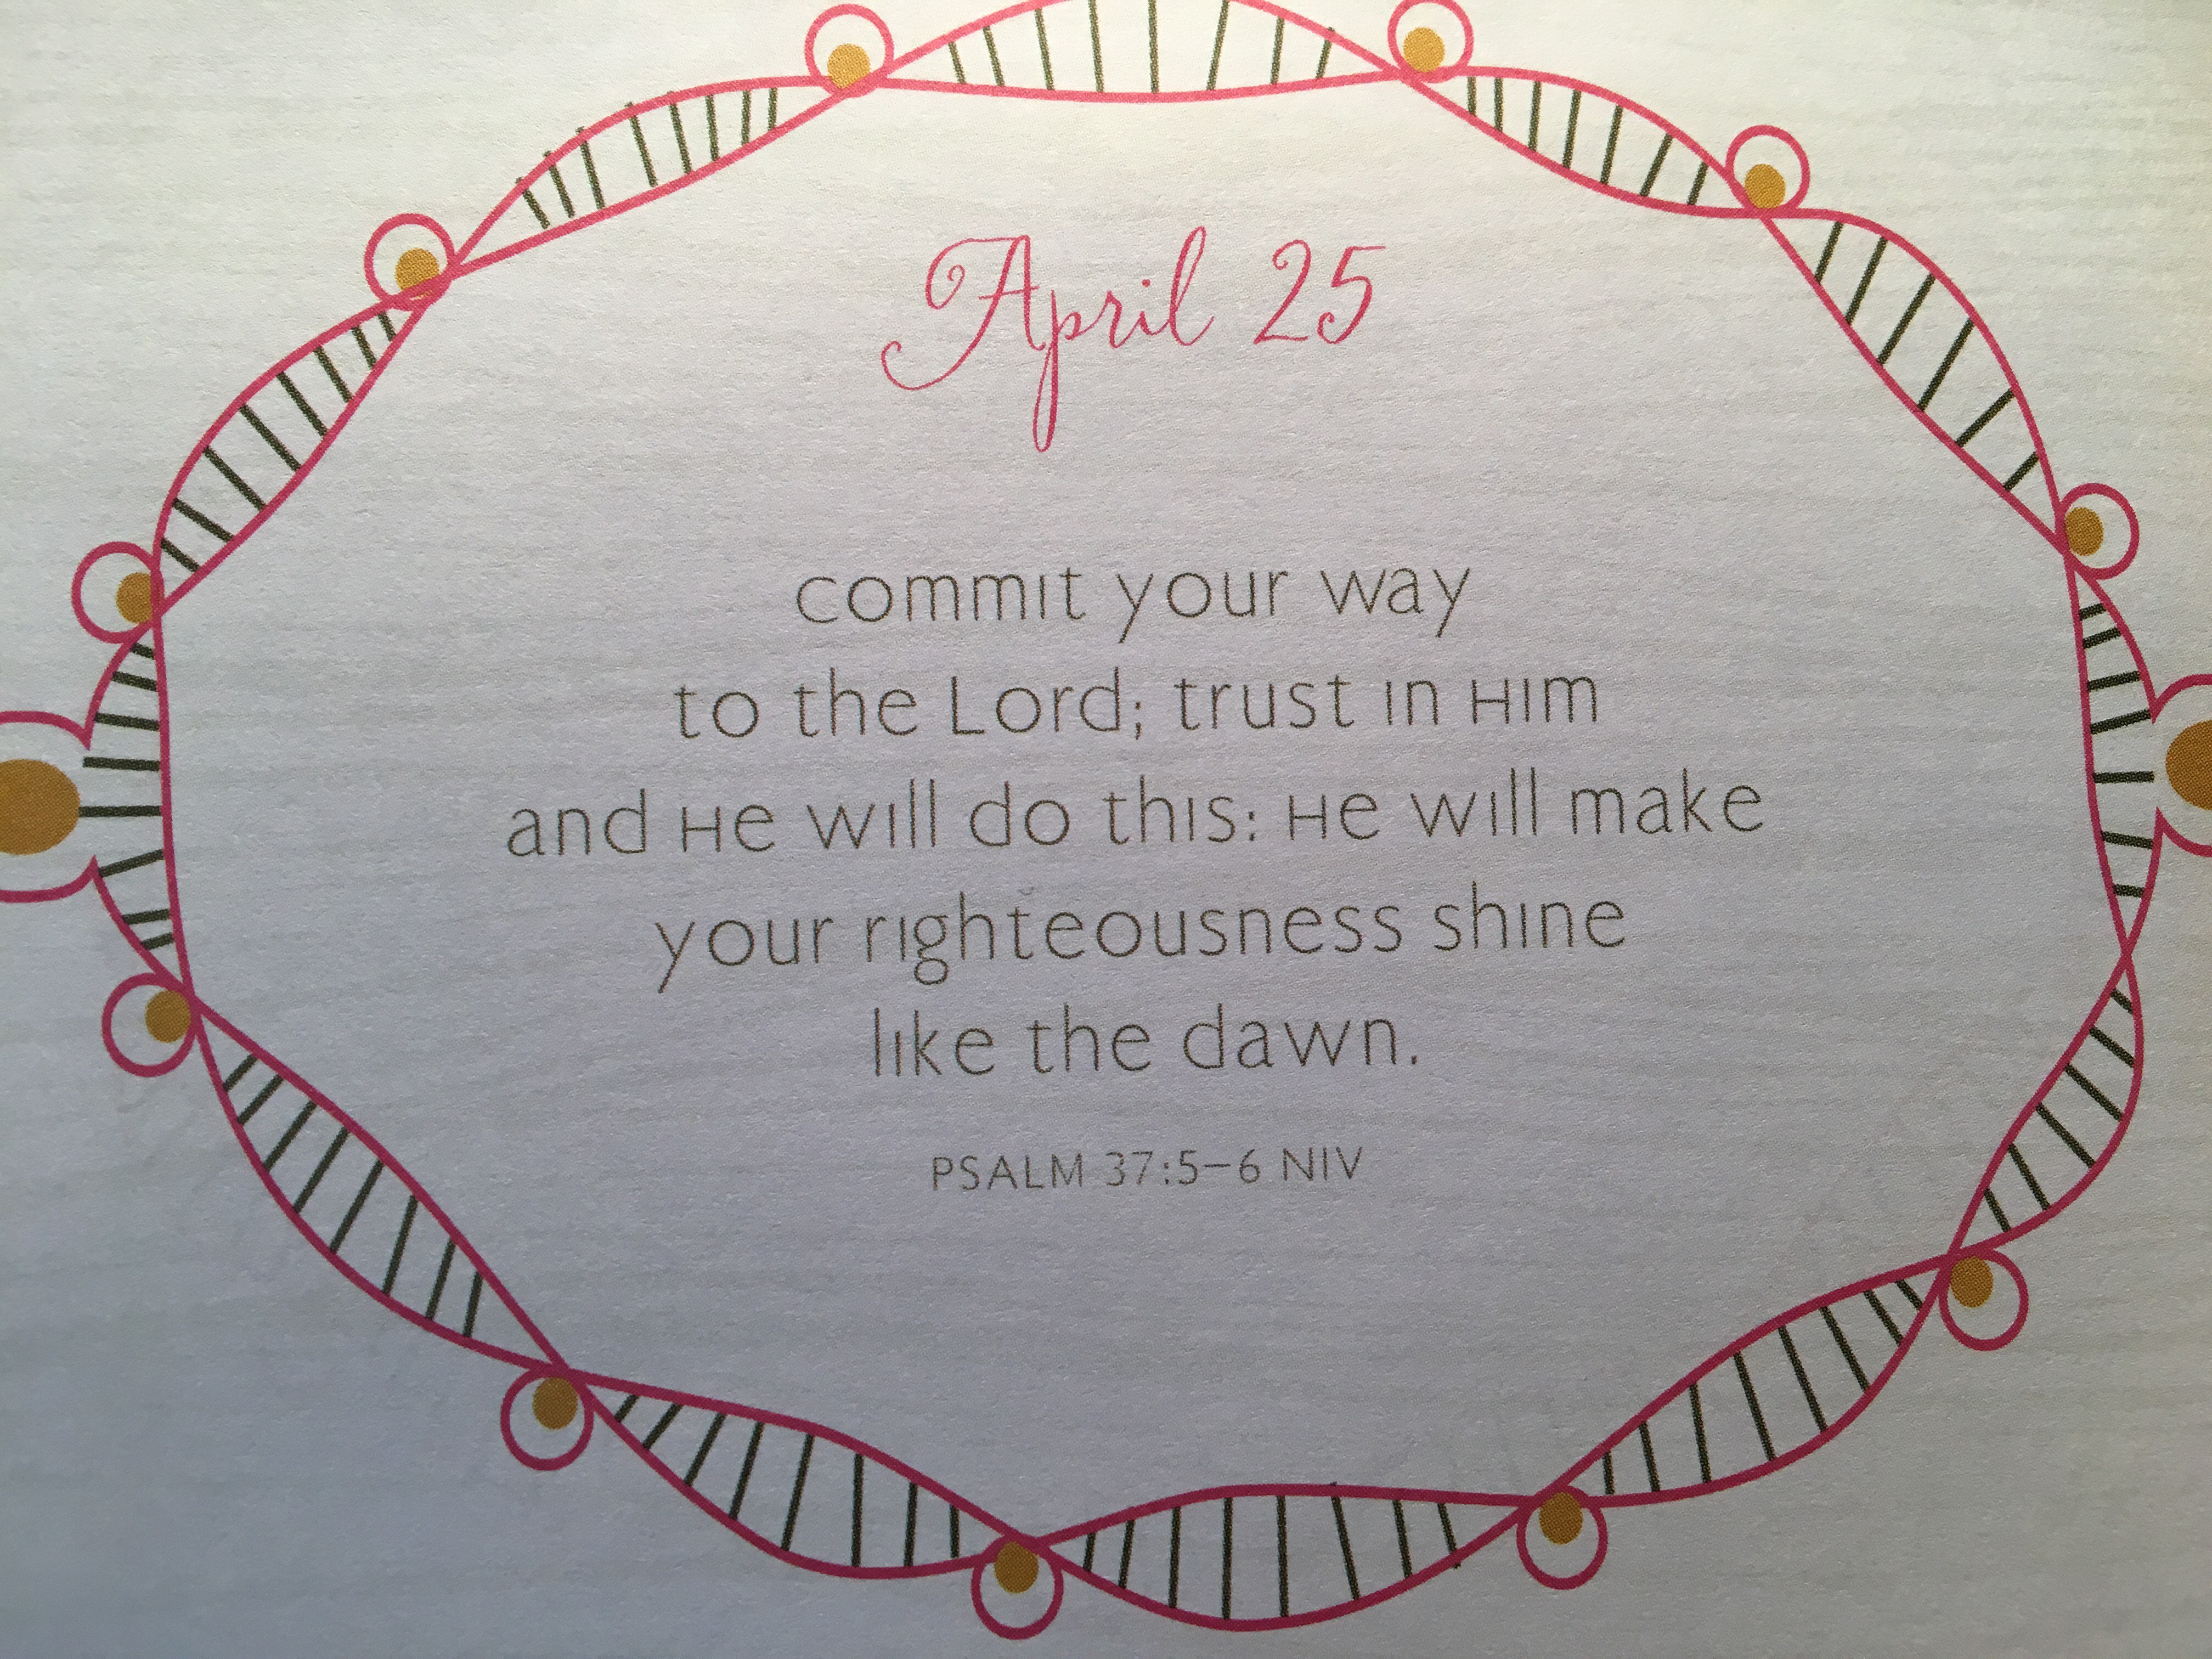 April 25
commit your way
to the Lord; trust in Him
and He will do this: He will make
your righteousness shine
like the dawn.
PSALM 37:5–6 NIV